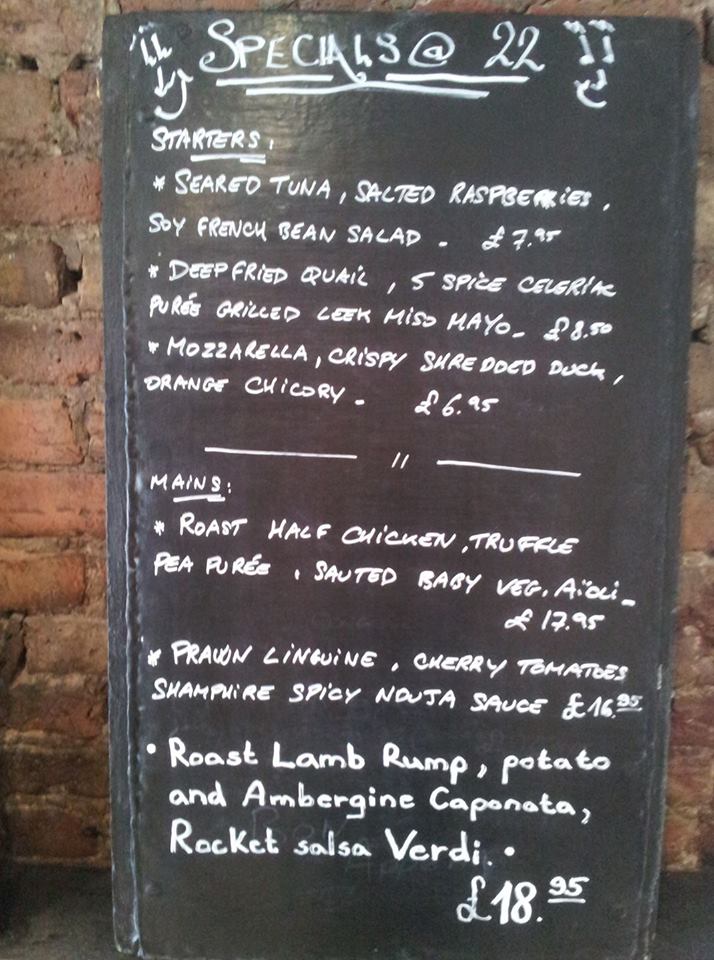 SPECIALS @ 22
STARTERS:
* SEARED TUNA, SALTED RASPBERRIES,
SOY FRENCH BEAN SALAD - £7.95
* DEEPFRIED QUAIL, 5 SPICE CELERIAC
PURÉE GRILLED LEEK MISO MAYO - £8.50
* MOZZARELLA, CRISPY SHREDDED DUCK,
ORANGE CHICORY - £6.95
MAINS:
* ROAST HALF CHICKEN, TRUFFLE
PEA PURÉE, SAUTED BABY VEG. AÏOLI -
£17.95
* PRAWN LINGUINE, CHERRY TOMATOES
SHAMPHIRE SPICY NDUJA SAUCE £16.95
• Roast Lamb Rump, potato
and Ambergine Caponata,
Rocket salsa Verdi. •
£18.95